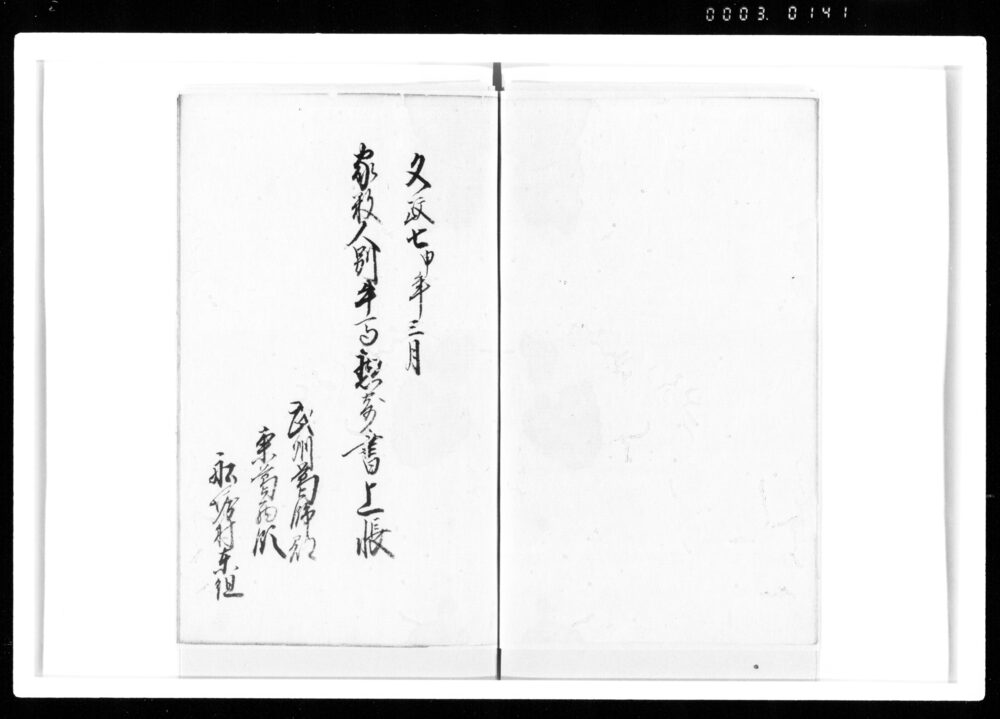 0003. 0141
文政七申年三月
家数人別牛馬惣寄書上帳
武州葛飾郡
東葛西領
村東組